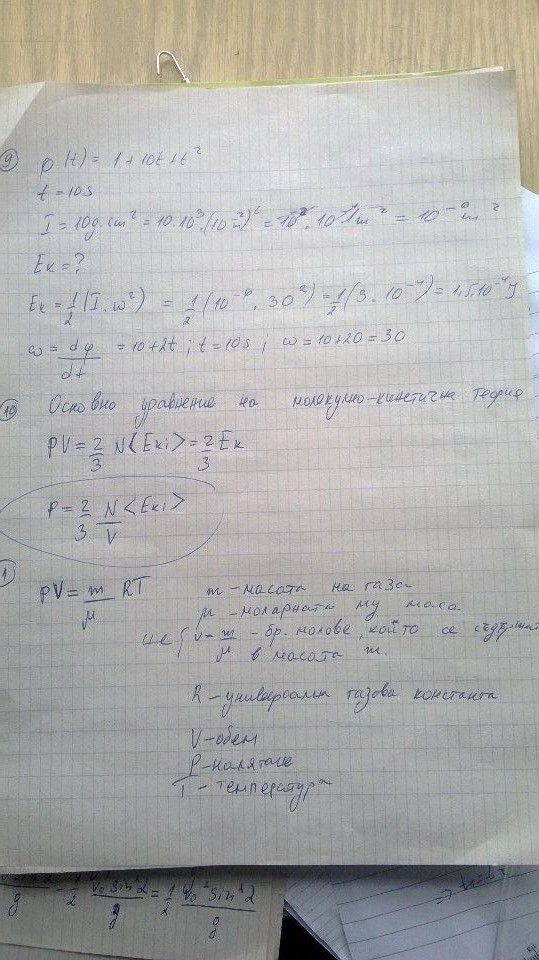 9 φ(t) = 1 + 10t + t²
t = 10s
I = 10g.cm² = 10.10³.(10⁻² m)² = 10⁻².10⁻⁴ m² = 10⁻⁶ m²
Ek = ?
Ek = 1/2 (I.ω²) = 1/2 (10⁻⁶. 30²) = 1/2 (3. 10⁻⁴) = 1,5.10⁻⁴ J
ω = dφ/dt = 10+2t ; t = 10s ; ω = 10+20 = 30
10 Основно уравнение на молекулно-кинетична теория
PV = 2/3 N<Eki> = 2/3 Ek
P = 2/3 N/V <Eki>
1 PV = m/μ RT m - масата на газа
μ - моларната му маса
не { ν = m/μ - бр. молове, който се съдържат
в масата m.
R - универсална газова константа
V - обем
P - налягане
T - температура
g - 1/2 V₀² sin²α/g = 1/2 V₀² sin²α/g